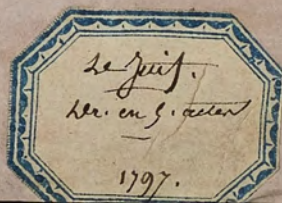 Le Juif.
Dr. en 5. actes
1797.